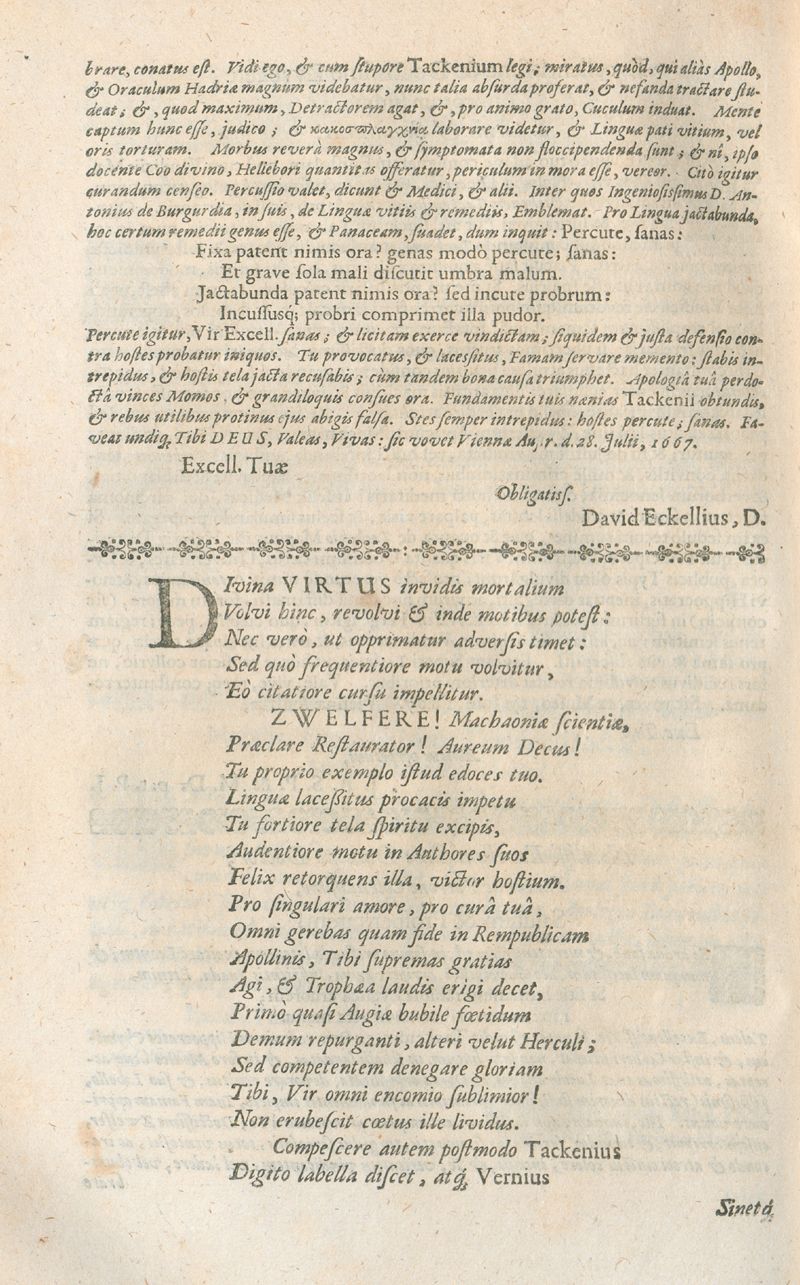 brare, conatus eſt. Vidi ego, & cum ſtupore Tackenium legi; miratus, quòd, qui aliàs Apollo,
& Oraculum Hadriæ magnum videbatur, nunc talia abſurda proferat, & nefanda tractare ſtu-
deat; &, quod maximum, Detractorem agat, &, pro animo grato, Cuculum induat. Mente
captum hunc eſſe, judico; & laborare videtur, & Linguæ pati vitium, vel
oris torturam. Morbus reverà magnus, & ſymptomata non floccipendenda ſunt; & nî, ipſo
docente Coo divino, Hellebori quantitas offeratur, periculum in mora eſſe, vereor. Citò igitur
curandum cenſeo. Percuſſio valet, dicunt & Medici, & alii. Inter quos Ingenioſiſſimus D. An-
tonius de Burgundia, in ſuis, de Linguæ vitiis & remediis, Emblemat. Pro Lingua jactabunda,
hoc certum remedii genus eſſe, & Panaceam, ſuadet, dum inquit: Percute, ſanas:
Fixa patent nimis ora? genas modò percute; ſanas:
Et grave ſola mali diſcutit umbra malum.
Jactabunda patent nimis ora? ſed incute probrum:
Incuſſusq́; probri comprimet illa pudor.
Percute igitur, Vir Excell. ſanas; & licitam exerce vindictam; ſiquidem & juſta defenſio con-
tra hoſtes probatur iniquos. Tu provocatus, & laceſſitus, Famam ſervare memento: ſtabis in-
trepidus, & hoſtis tela jacta recuſabis; cùm tandem bona cauſa triumphet. Apologiâ tuâ perdo-
ctâ vinces Momos, & grandiloquis conſues ora. Fundamentis tuis nænias Tackenii obtundis,
& rebus utilibus protinus ejus abigis falſa. Stes ſemper intrepidus: hoſtes percute; ſanas. Fa-
veat undiq́; Tibi DEUS, Valeas, Vivas: ſic vovet Viennæ Auſtr. d. 28. Julii, 1667.
Excell. Tuæ
Obligatiſſ.
David Eckellius, D.
DIvina VIRTUS invidis mortalium
Volvi hinc, revolvi & inde motibus poteſt:
Nec verò, ut opprimatur adverſis timet:
Sed quò frequentiore motu volvitur,
Eò citatiore curſu impellitur.
ZWELFERE! Machaoniæ ſcientiæ,
Præclare Reſtaurator! Aureum Decus!
Tu proprio exemplo iſtud edoces tuo.
Linguæ laceſſitus procacis impetu
Tu fortiore tela ſpiritu excipis,
Audentiore motu in Authores ſuos
Felix retorquens illa, victor hoſtium.
Pro ſingulari amore, pro curâ tuâ,
Omni gerebas quam fide in Rempublicam
Apollinis, Tibi ſupremas gratias
Agi, & Trophæa laudis erigi decet,
Primò quaſi Augiæ bubile fœtidum
Demum repurganti, alteri velut Herculi;
Sed competentem denegare gloriam
Tibi, Vir omni encomio ſublimior!
Non erubeſcit cœtus ille lividus.
Compeſcere autem poſtmodo Tackenius
Digito labella diſcet, atq́; Vernius
Sinetq́